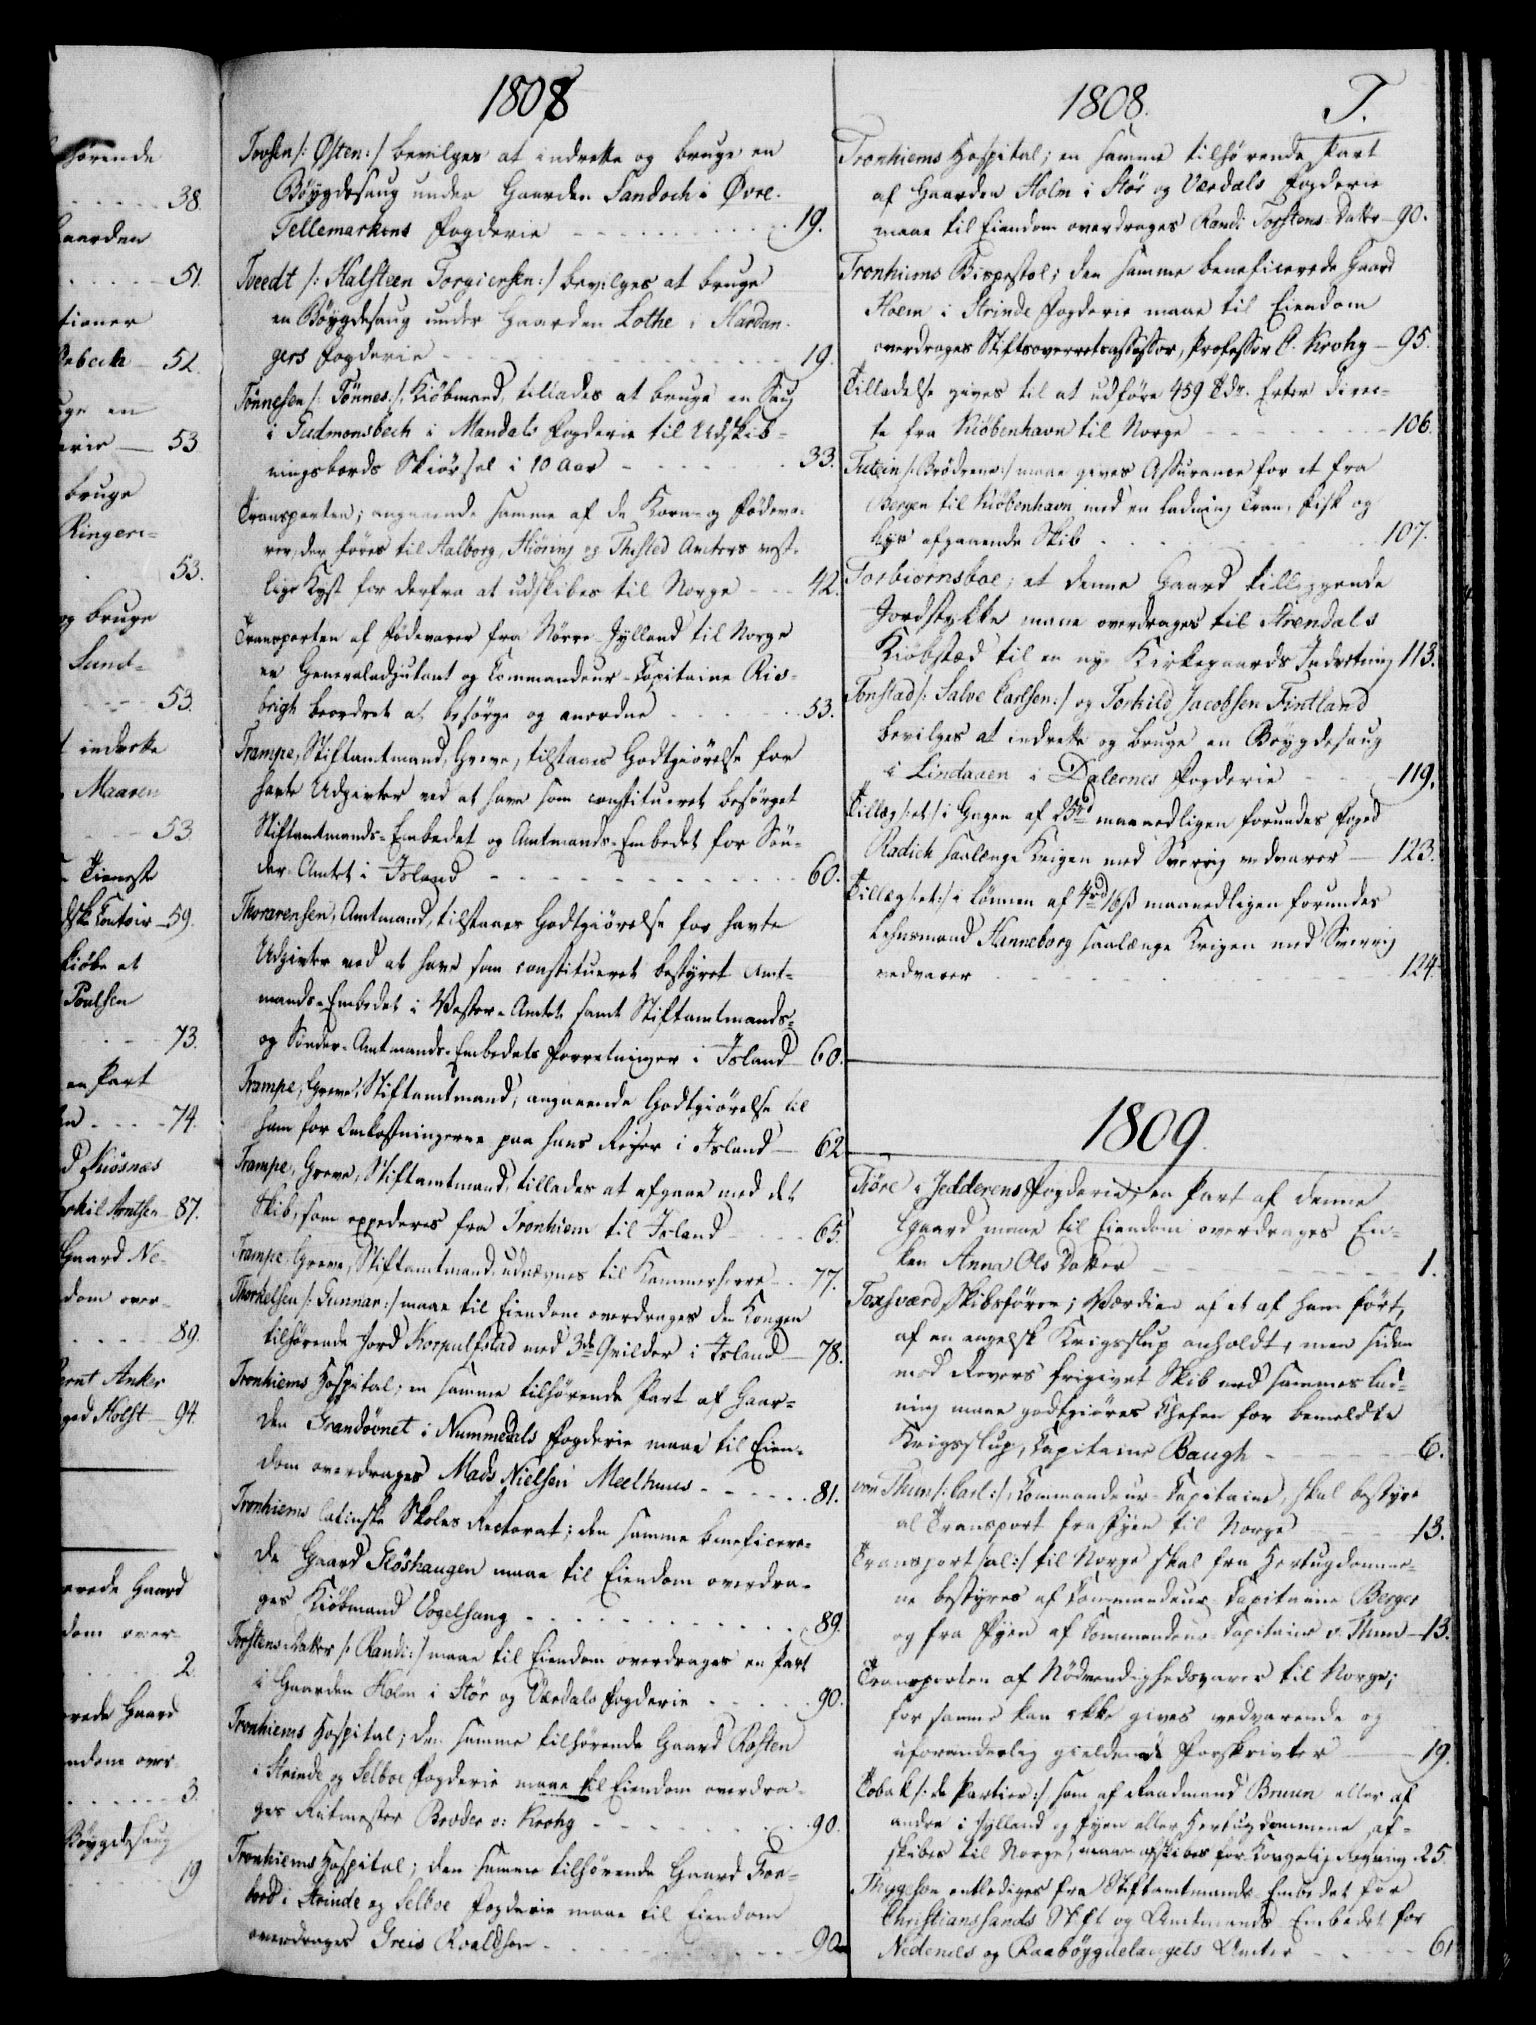 hørende
38.
Gaarden
51.
tioner
Rebeck — 52.
uge en
erie — 53
bruge
Ringeri-
53.
og bruge
Sund-
53.
indrette
Maaren
53
Tieneste
Contoir — 59.
kiøbe et
Poulsen
73.
en Part
74.
Skiøsnæs
Torkil Arntsen — 87.
Gaard Ne-
dom over-
89.
Bernt Anker
Foged Holst — 94.
erede Gaard
dom over-
2.
erede Gaard
endom over-
3.
Bøygdesaug
19
1808
Tovsen /: Østen :/ bevilges at indrette og bruge en
Bøygdesaug under Gaarden Sandoch i Øvre-
Tellemarkens Fogderie — 19.
Tveedt /: Halsteen Torgiersen :/ bevilges at bruge
en Bøygdesaug under Gaarden Lothe i Hardan-
gers Fogderie — 19.
Tønnesen /: Tønnes :/, Kiøbmand, tillades at bruge en Saug
i Gudmonsbech i Mandals Fogderie til Udskib-
ningsbords Skiørsel i 10 Aar — 33.
Transporten; angaaende samme af de Korn- og Fødeva-
rer, der føres til Aalborg, Hiøring og Thisted Amters vest-
lige Kyst for derfra at udskibes til Norge — 42.
Transporten af Fødevarer fra Nørre-Jylland til Norge
er Generaladjutant og Commandeur-Capitaine Ris-
brigh beordret at besørge og anordne — 53.
Trampe, Stiftamtmand, Greve, tilstaaes Godtgiørelse for
havte Udgivter ved at have som constitueret besørget
Stiftamtmands-Embedet og Amtmands-Embedet for Søn-
der-Amtet i Island — 60.
Thorarensen, Amtmand, tilstaaes Godtgiørelse for havte
Udgivter ved at have som constitueret bestyret Amt-
mands-Embedet i Vester-Amtet samt Stiftamtmands-
og Sønder-Amtmands-Embedets Forretninger i Island — 60.
Trampe, Greve, Stiftamtmand, angaaende Godtgiørelse til
ham for Omkostningerne paa hans Reiser i Island — 62
Trampe, Greve, Stiftamtmand, tillades at afgaae med det
Skib, som expederes fra Tronhiem til Island — 65.
Trampe, Greve, Stiftamtmand, udnævnes til Kammerherre — 77.
Thorkelsen /: Gunnar :/ maae til Eiendom overdrages den Kongen
tilhørende Jord Korpulfstad med 3de Qvilder i Island — 78.
Tronhiems Hospital; en samme tilhørende Part af Gaar-
den Grandøvnet i Nummedals Fogderie maae til Eien-
dom overdrages Mads Nielsen Meelhuus — 81.
Tronhiems latinske Skoles Rectorat; den samme beneficere-
de Gaard Gløshaugen maae til Eiendom overdra-
ges Kiøbmand Vogelsang — 89.
Torstens Datter /: Randi :/ maae til Eiendom overdrages en Part
i Gaarden Holm i Stør og Værdals Fogderie — 90.
Tronhiems Hospital; den samme tilhørende Gaard Rosten
i Strinde og Selboe Fogderie maae til Eiendom overdra-
ges Ritmester Broder v: Krohg — 90.
Tronhiems Hospital; den samme tilhørende Gaard Fron-
bord i Strinde og Selboe Fogderie maae til Eiendom
overdrages Greis Roaldsen — 90
1808. T.
Tronhiems Hospital; en samme tilhørende Part
af Gaarden Holm i Stør og Værdals Fogderie
maae til Eiendom overdrages Randi Torstens-Datter — 90.
Tronhiems Bispestol; den samme beneficerede Gaard
Hoem i Strinde Fogderie maae til Eiendom
overdrages Stiftsoverretsassessor, Professor C. Krohg — 95.
Tilladelse gives til at udføre 459 Tdr. Erter direc-
te fra Kiøbenhavn til Norge — 106.
Tutein /: Brødrene :/ maae gives Assurance for et fra
Bergen til Kiøbenhavn med en Ladning Tran, Fisk og
Lys afgaaende Skib — 107.
Torbiørnsboe; et denne Gaard tilliggende
Jordstykke maae overdrages til Arendals
Kiøbstæd til en nye Kirkegaards Indretning 113.
Tonstad /: Salve Carlsen :/ og Torkild Jacobsen Fintland
bevilges at indrette og bruge en Bøygdesaug
i Lindaaen i Dalernes Fogderie — 119.
Tillæg /: et :/ i Gagen af 25rd maanedligen forundes Foged
Radich saalænge Krigen med Sverrig vedvarer — 123.
Tillæg /: et :/ i Lønnen af 4rd 16ß maanedligen forundes
Lehnsmand Hanneborg saalænge Krigen med Sverrig
vedvarer — 124.
1809.
Tiøre i Jedderens Fogderie; en Part af denne
Gaard maae til Eiendom overdrages En-
ken Anna Ols Datter — 1.
Toxsværd, Skibsfører; Værdien af et af ham ført,
af en engelsk Krigsslup anholdt, men siden
mod Revers frigivet Skib med sammes Lad-
ning maae godtgiøres Chefen for bemeldte
Krigsslup, Capitaine Baugh — 6.
von Thun /: Carl :/, Commandeur-Capitaine, skal bestyre
al Transport fra Fyen til Norge — 13.
Transport /: al :/ til Norge skal fra Hertugdømme-
ne bestyres af Commandeur-Capitaine Berger
og fra Fyen af Commandeur-Capitaine v. Thun — 13.
Transporten af Nødvendighedsvarer til Norge;
for samme kan ikke gives vedvarende og
uforanderlig gieldende Forskrivter — 19.
Tobak /: de Partier :/ som af Raadmand Bruun eller af
andre i Jylland og Fyen eller Hertugdømmene af-
skibes til Norge, maae afskibes for Kongelig Regning 25.
Thygeson entlediges fra Stiftamtmands-Embedet for
Christianssands Stift og Amtmands-Embedet for
Nedenæs og Raabøygdelaugets Amter — 61